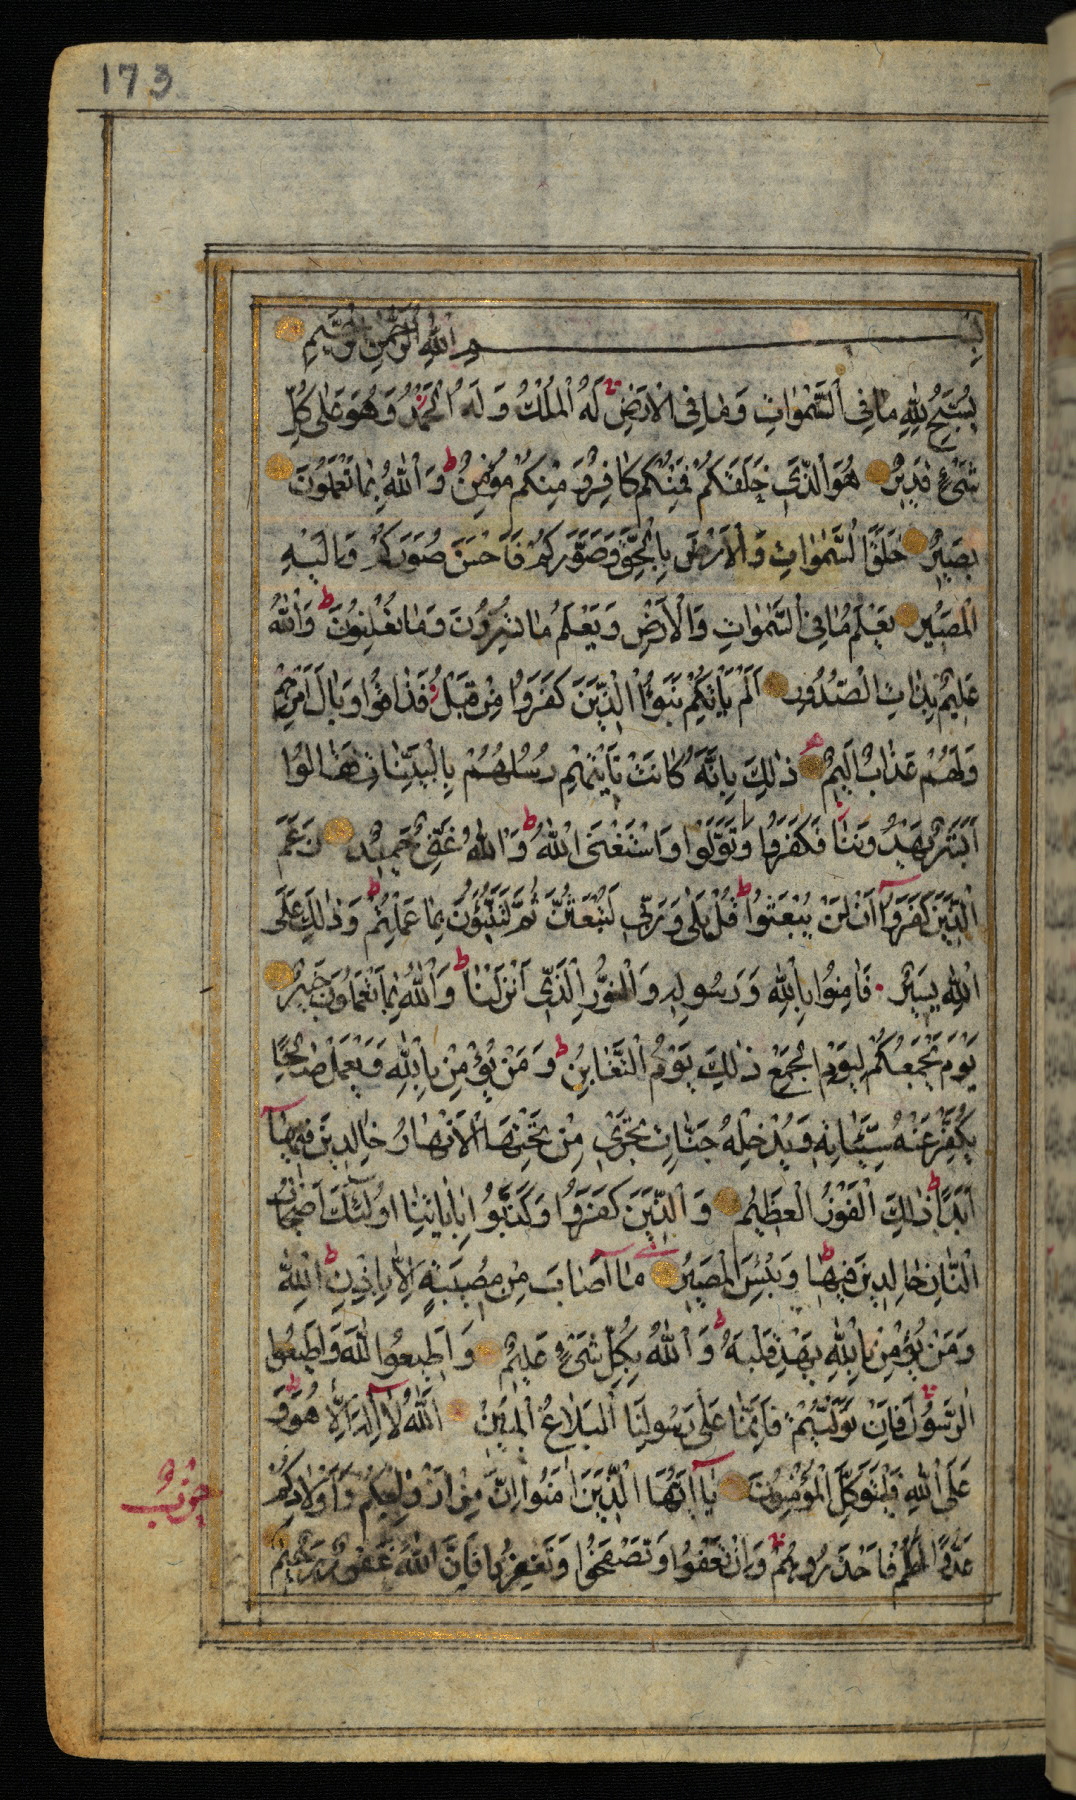 173
بِسْمِ اللهِ الرَّحْمٰنِ الرَّحِيمِ
يُسَبِّحُ لِلّٰهِ مَا فِي السَّمٰوَاتِ وَمَا فِي الْاَرْضِ لَهُ الْمُلْكُ وَلَهُ الْحَمْدُ وَهُوَ عَلٰى كُلِّ
شَيْءٍ قَدِيرٌ هُوَ الَّذِي خَلَقَكُمْ فَمِنْكُمْ كَافِرٌ وَمِنْكُمْ مُؤْمِنٌ ط وَاللهُ بِمَا تَعْمَلُونَ
بَصِيرٌ خَلَقَ السَّمٰوَاتِ وَالْاَرْضَ بِالْحَقِّ وَصَوَّرَكُمْ فَاَحْسَنَ صُوَرَكُمْ وَاِلَيْهِ
الْمَصِيرُ يَعْلَمُ مَا فِي السَّمٰوَاتِ وَالْاَرْضِ وَيَعْلَمُ مَا تُسِرُّونَ وَمَا تُعْلِنُونَ ط وَاللهُ
عَلِيمٌ بِذَاتِ الصُّدُورِ اَلَمْ يَاْتِكُمْ نَبَؤُا الَّذِينَ كَفَرُوا مِنْ قَبْلُ فَذَاقُوا وَبَالَ اَمْرِهِمْ
وَلَهُمْ عَذَابٌ اَلِيمٌ ذٰلِكَ بِاَنَّهُ كَانَتْ تَاْتِيهِمْ رُسُلُهُمْ بِالْبَيِّنَاتِ فَقَالُوا
اَبَشَرٌ يَهْدُونَنَا فَكَفَرُوا وَتَوَلَّوْا وَاسْتَغْنَى اللهُ ط وَاللهُ غَنِيٌّ حَمِيدٌ زَعَمَ
الَّذِينَ كَفَرُوا اَنْ لَنْ يُبْعَثُوا ط قُلْ بَلٰى وَرَبِّي لَتُبْعَثُنَّ ثُمَّ لَتُنَبَّؤُنَّ بِمَا عَمِلْتُمْ ط وَذٰلِكَ عَلَى
اللهِ يَسِيرٌ فَاٰمِنُوا بِاللهِ وَرَسُولِهِ وَالنُّورِ الَّذِي اَنْزَلْنَا ط وَاللهُ بِمَا تَعْمَلُونَ خَبِيرٌ
يَوْمَ يَجْمَعُكُمْ لِيَوْمِ الْجَمْعِ ذٰلِكَ يَوْمُ التَّغَابُنِ ط وَمَنْ يُؤْمِنْ بِاللهِ وَيَعْمَلْ صَالِحًا
يُكَفِّرْ عَنْهُ سَيِّئَاتِهِ وَيُدْخِلْهُ جَنَّاتٍ تَجْرِي مِنْ تَحْتِهَا الْاَنْهَارُ خَالِدِينَ فِيهَا
اَبَدًا ط ذٰلِكَ الْفَوْزُ الْعَظِيمُ وَالَّذِينَ كَفَرُوا وَكَذَّبُوا بِاٰيَاتِنَا اُولٰئِكَ اَصْحَابُ
النَّارِ خَالِدِينَ فِيهَا ط وَبِئْسَ الْمَصِيرُ مَا اَصَابَ مِنْ مُصِيبَةٍ اِلَّا بِاِذْنِ اللهِ
وَمَنْ يُؤْمِنْ بِاللهِ يَهْدِ قَلْبَهُ ط وَاللهُ بِكُلِّ شَيْءٍ عَلِيمٌ وَاَطِيعُوا اللهَ وَاَطِيعُوا
الرَّسُولَ فَاِنْ تَوَلَّيْتُمْ فَاِنَّمَا عَلٰى رَسُولِنَا الْبَلَاغُ الْمُبِينُ اَللهُ لَا اِلٰهَ اِلَّا هُوَ ط وَ
عَلَى اللهِ فَلْيَتَوَكَّلِ الْمُؤْمِنُونَ يَا اَيُّهَا الَّذِينَ اٰمَنُوا اِنَّ مِنْ اَزْوَاجِكُمْ وَاَوْلَادِكُمْ
عَدُوًّا لَكُمْ فَاحْذَرُوهُمْ وَاِنْ تَعْفُوا وَتَصْفَحُوا وَتَغْفِرُوا فَاِنَّ اللهَ غَفُورٌ رَحِيمٌ
حزب